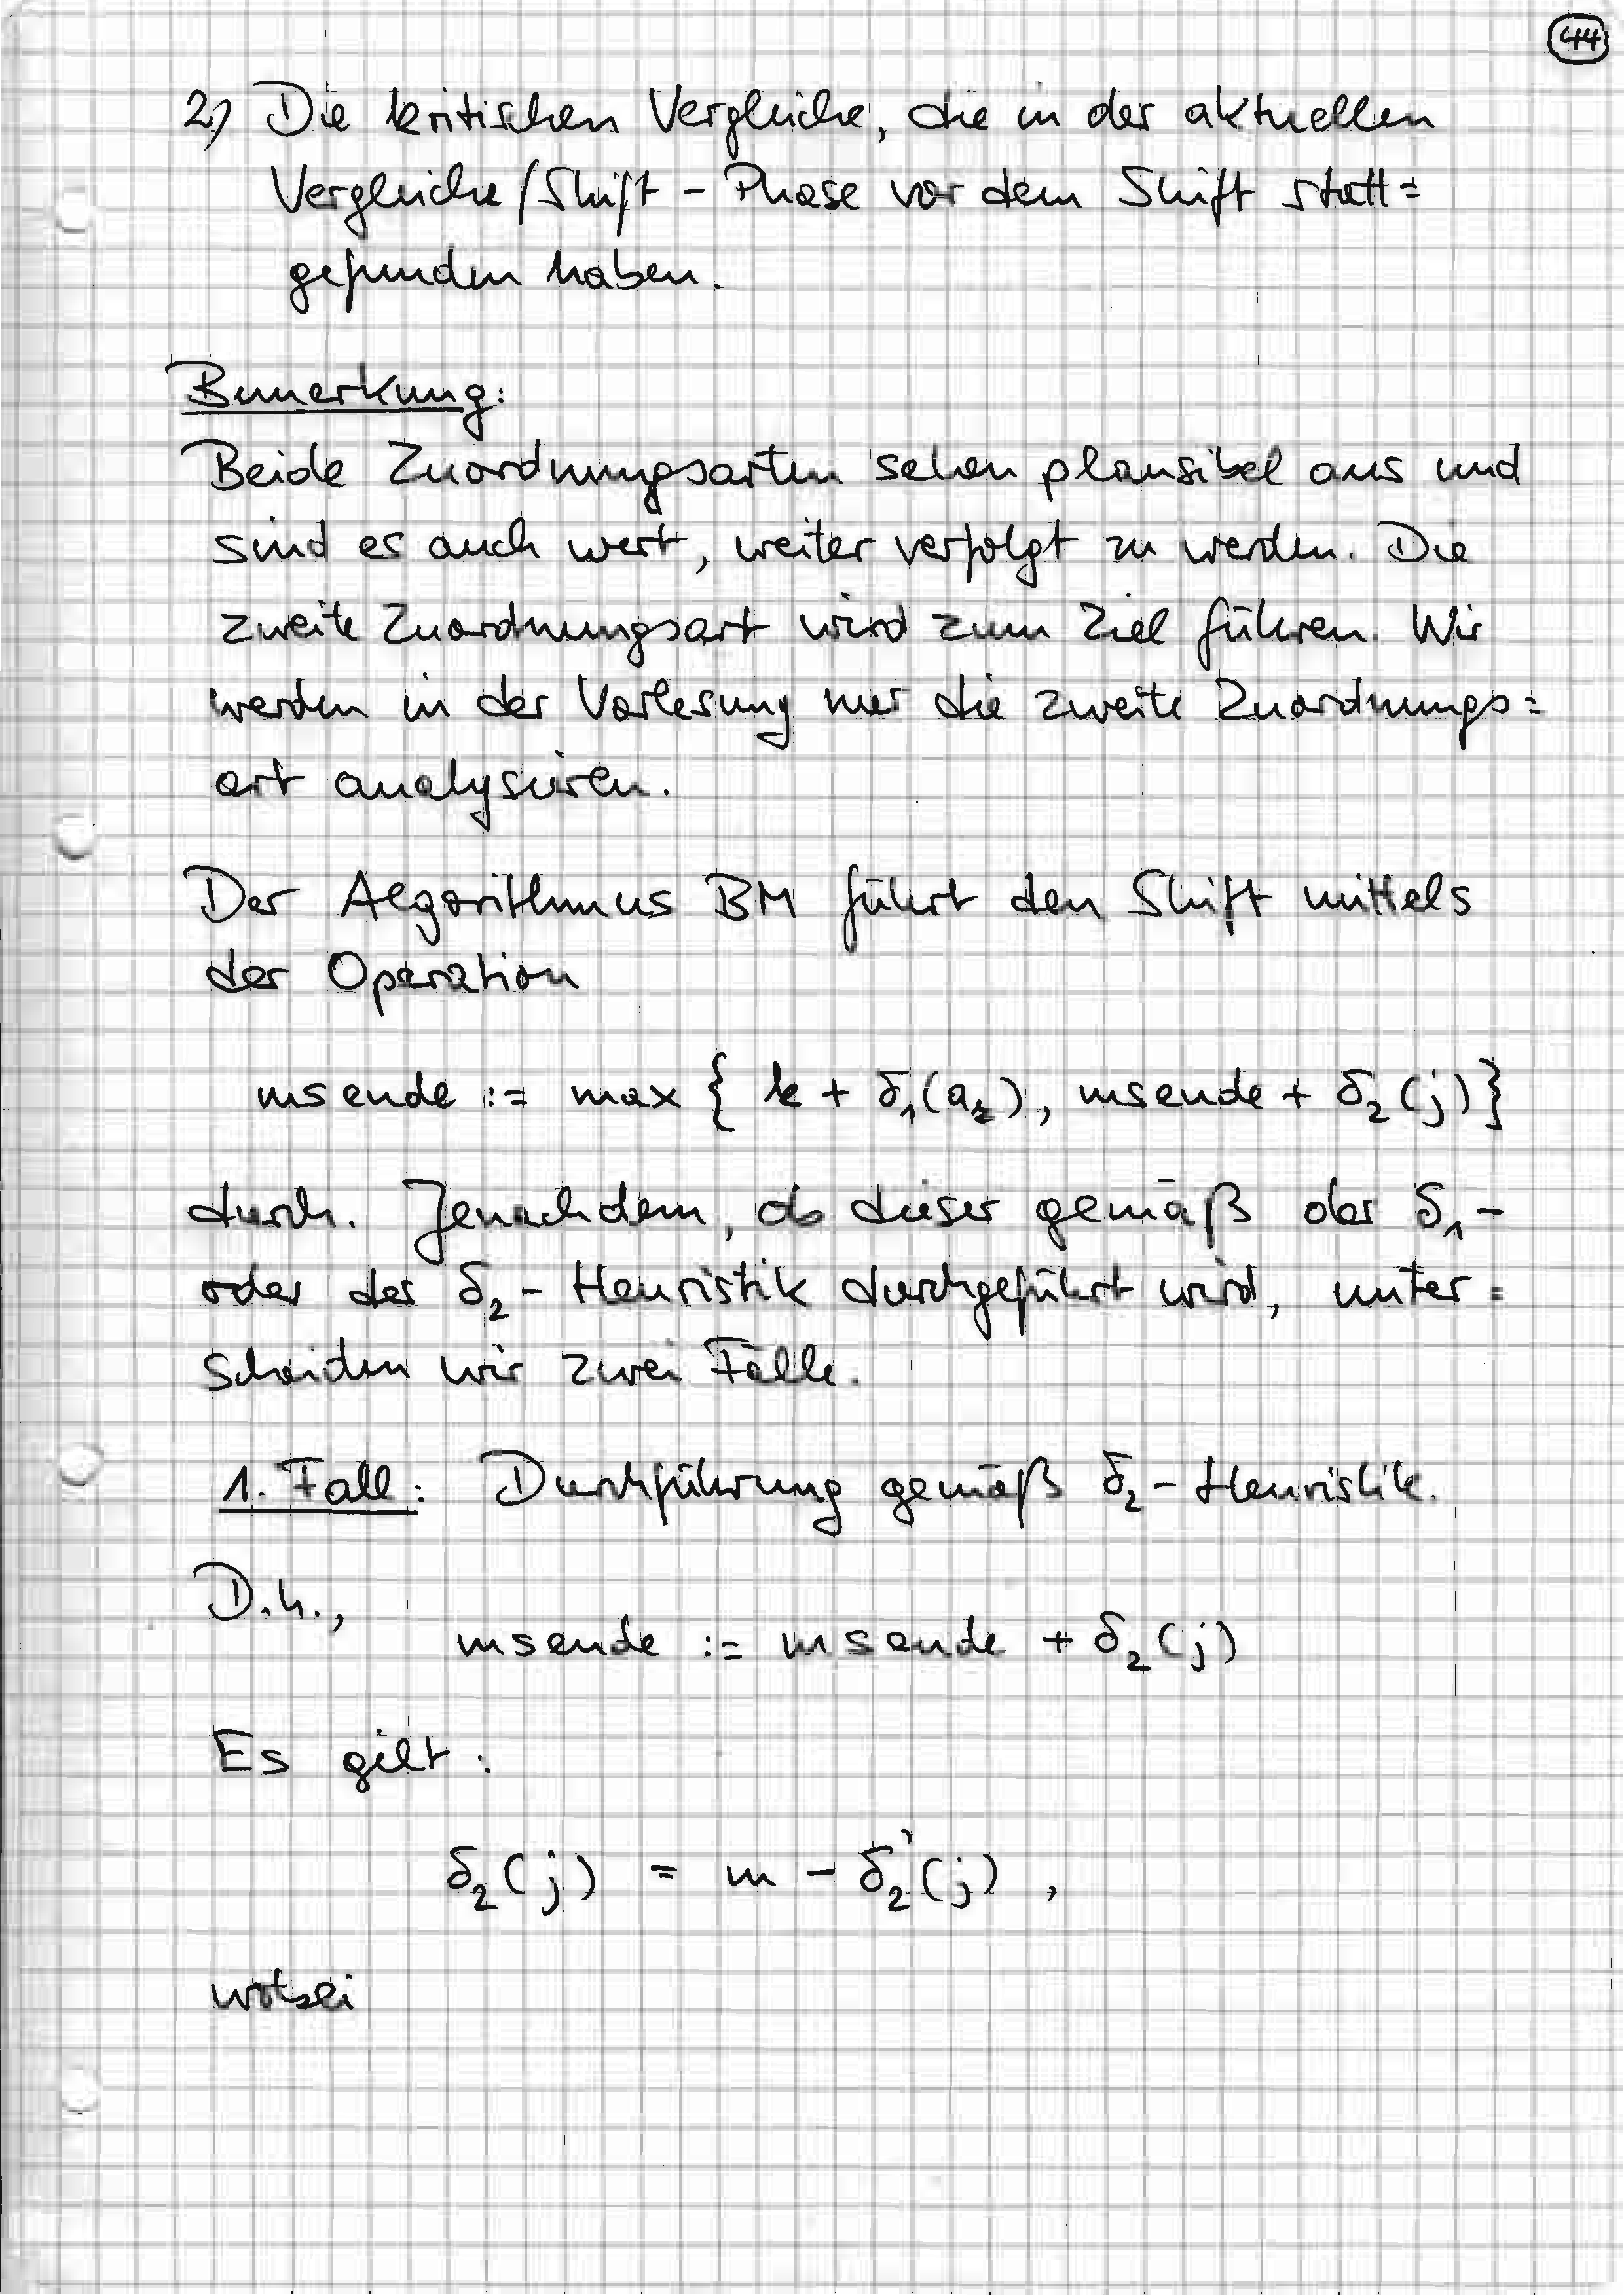 44
2) Die kritischen Vergleiche, die in der aktuellen
Vergleiche/Shift - Phase vor dem Shift statt=
gefunden haben.
Bemerkung:
Beide Zuordnungsarten sehen plausibel aus und
sind es auch wert, weiter verfolgt zu werden. Die
zweite Zuordnungsart wird zum Ziel führen. Wir
werden in der Vorlesung nur die zweite Zuordnungs=
art analysieren.
Der Algorithmus BM führt den Shift mittels
der Operation
msende := max { k + δ₁(aₖ), msende + δ₂(j)}
durch. Jenachdem, ob dieser gemäß der δ₁-
oder der δ₂- Heuristik durchgeführt wird, unter=
scheiden wir zwei Fälle.
1. Fall: Durchführung gemäß δ₂- Heuristik.
D.h.,
msende := msende + δ₂(j)
Es gilt:
δ₂(j) = m - δ₂'(j) ,
wobei